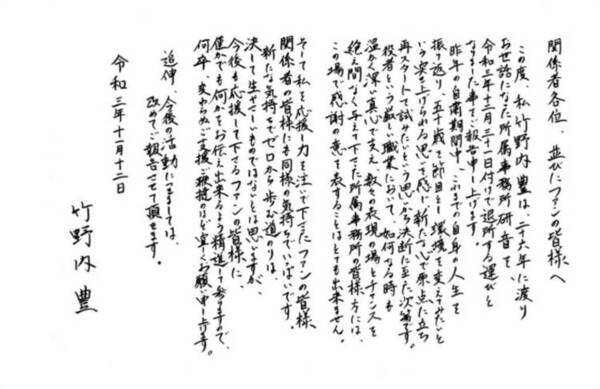 関係者各位、並びにファンの皆様へ
この度、私 竹野内 豊は、二十六年に渡り
お世話になった所属事務所 研音を
令和三年十二月三十一日付けで退所する運びと
なりました事をご報告申し上げます。
昨年の自粛期間中、これまでの自身の人生を
振り返り、五十歳を節目と環境を変えてみたいと
いう突き上げられる思いを感じ、新たな心で原点に立ち
再スタートして試みたいという思から、決断に至た次第です。
役者という厳い職業において、如何なる時も
温かく深い真心で支え、数々の表現の場とチャンスを
絶え間なく与えて下さた所属事務所の皆様方には、
この場で感謝の意を表することはとても出来ません。
そして私を応援し力を注いで下さたファンの皆様、
関係者の皆様にも同様の気持ちでいぱいです。
新たな気持ちでゼロから歩む道のりは、
決して生やさしいものではないとは思いますが、
今後も応援して下さるファンの皆様に
僅かでも何かをお伝え出来るよう精進して参りますので、
何卒、変わらぬご支援ご推挽のほど宜しくお願い申し上げます。
追伸、今後の活動につきましては、
改めてご報告させて頂きます。
令和三年十一月十二日
竹野内 豊